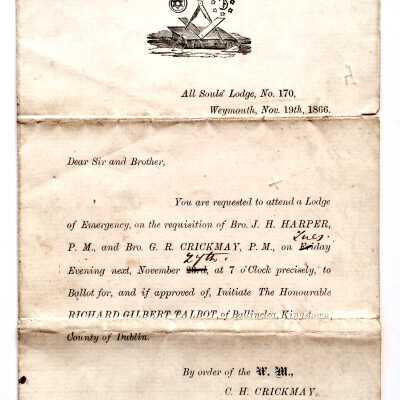 All Souls' Lodge, No. 170,
Weymouth, Nov. 19th, 1866.
Dear Sir and Brother,
You are requested to attend a Lodge
of Emergency, on the requisition of Bro. J. H. HARPER,
Tues.
P. M., and Bro. G. R. CRICKMAY, P. M., on Friday
27th.
Evening next, November 23rd, at 7 o'Clock precisely, to
Ballot for, and if approved of, Initiate The Honourable
RICHARD GILBERT TALBOT, of Ballinclea, Kingstown,
County of Dublin.
By order of the W. M.,
C. H. CRICKMAY,